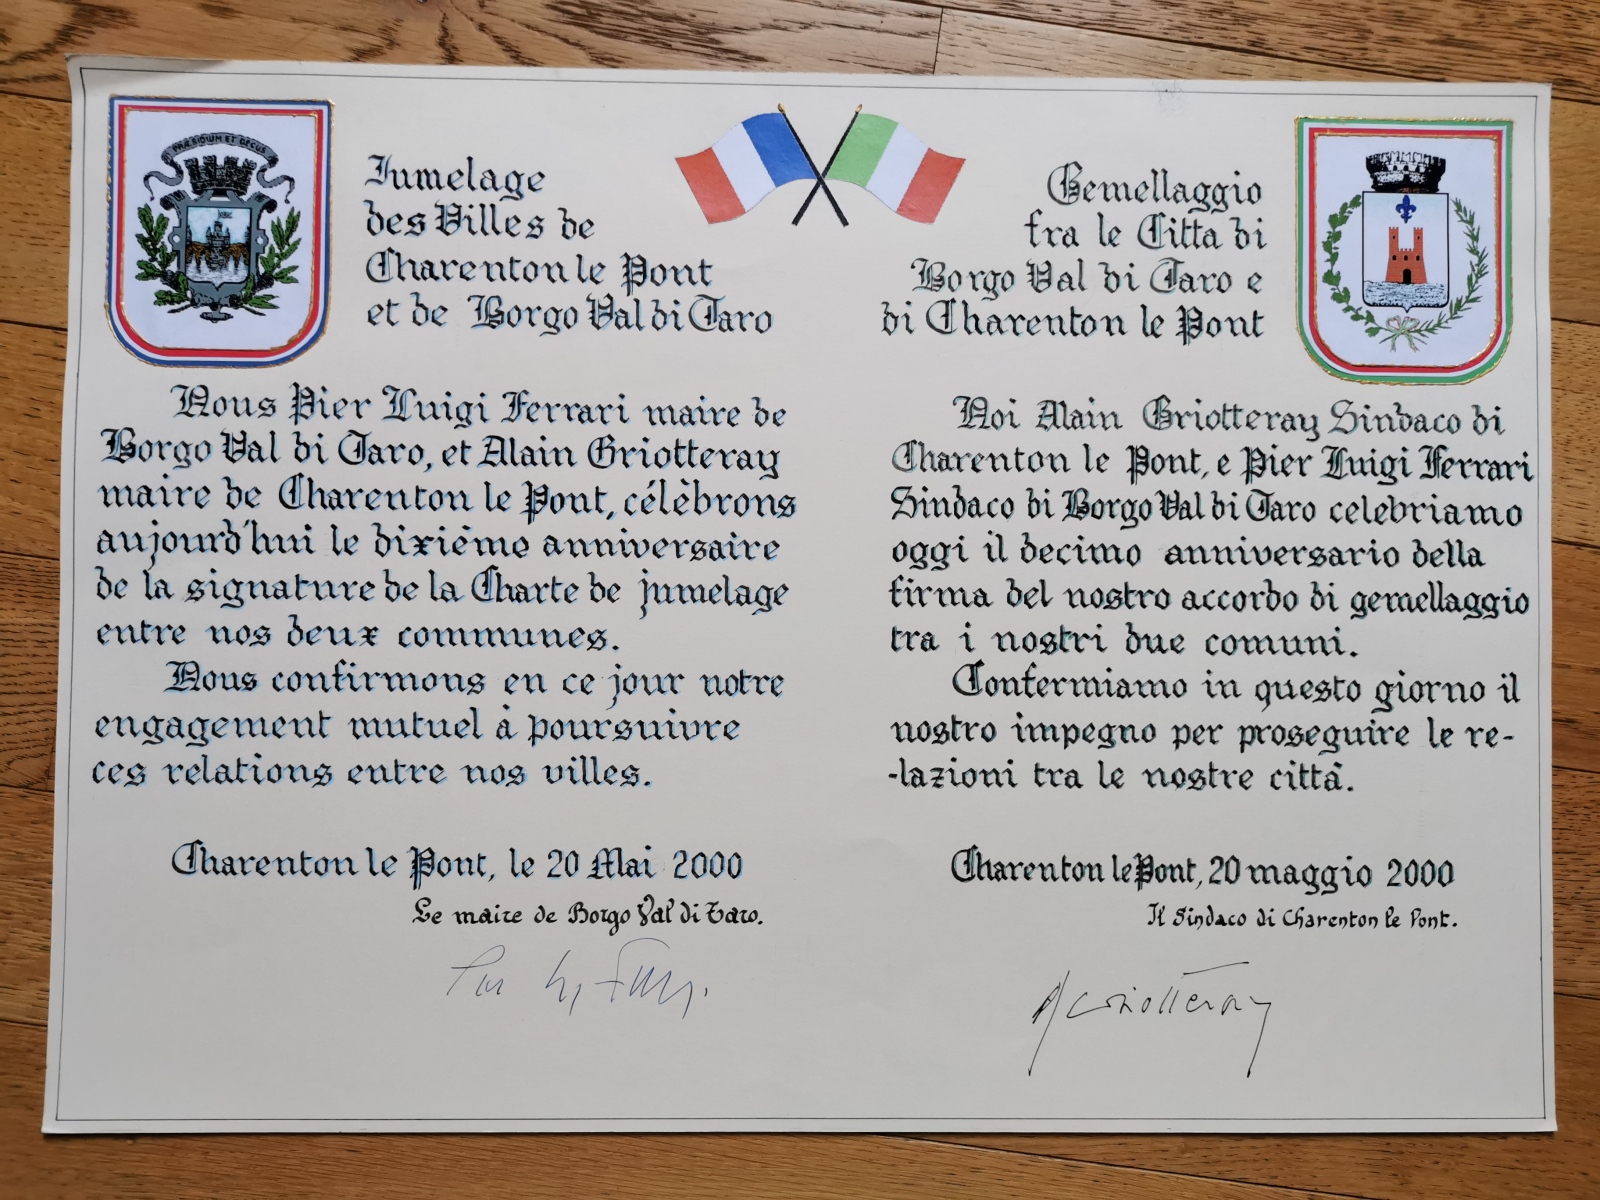 PRÆSIDIUM ET DECUS
Jumelage
des Villes de
Charenton le Pont
et de Borgo Val di Taro
Nous Pier Luigi Ferrari maire de
Borgo Val di Taro, et Alain Griotteray
maire de Charenton le Pont, célèbrons
aujourd'hui le dixiéme anniversaire
de la signature de la Charte de jumelage
entre nos deux communes.
Nous confirmons en ce jour notre
engagement mutuel à poursuivre
ces relations entre nos villes.
Charenton le Pont, le 20 Mai 2000
Le maire de Borgo Val di Taro.
Gemellaggio
fra le Citta di
Borgo Val di Taro e
di Charenton le Pont
Noi Alain Griotteray Sindaco di
Charenton le Pont, e Pier Luigi Ferrari
Sindaco di Borgo Val di Taro celebriamo
oggi il decimo anniversario della
firma del nostro accordo di gemellaggio
tra i nostri due comuni.
Confermiamo in questo giorno il
nostro impegno per proseguire le re-
-lazioni tra le nostre città.
Charenton le Pont, 20 maggio 2000
Il Sindaco di Charenton le Pont.
A Griotteray